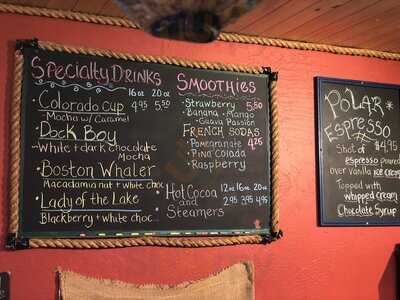 Specialty Drinks
16oz 20oz
• Colorado Cup 4.95 5.50
Mocha w/ Caramel
• Dock Boy
White + dark chocolate
Mocha
• Boston Whaler
Macadamia nut + white choc
• Lady of the Lake
Blackberry + white choc...
Smoothies
• Strawberry 5.50
• Banana • Mango
• Guava Passion
French Sodas
• Pomegranate 4.25
• Pina Colada
• Raspberry
Hot Cocoa 12oz 16oz 20oz
and 2.95 3.95 4.95
Steamers
Polar *
Espresso
Shot of $4.95
espresso poured
over vanilla ice cream
Topped with
whipped cream
Chocolate Syrup